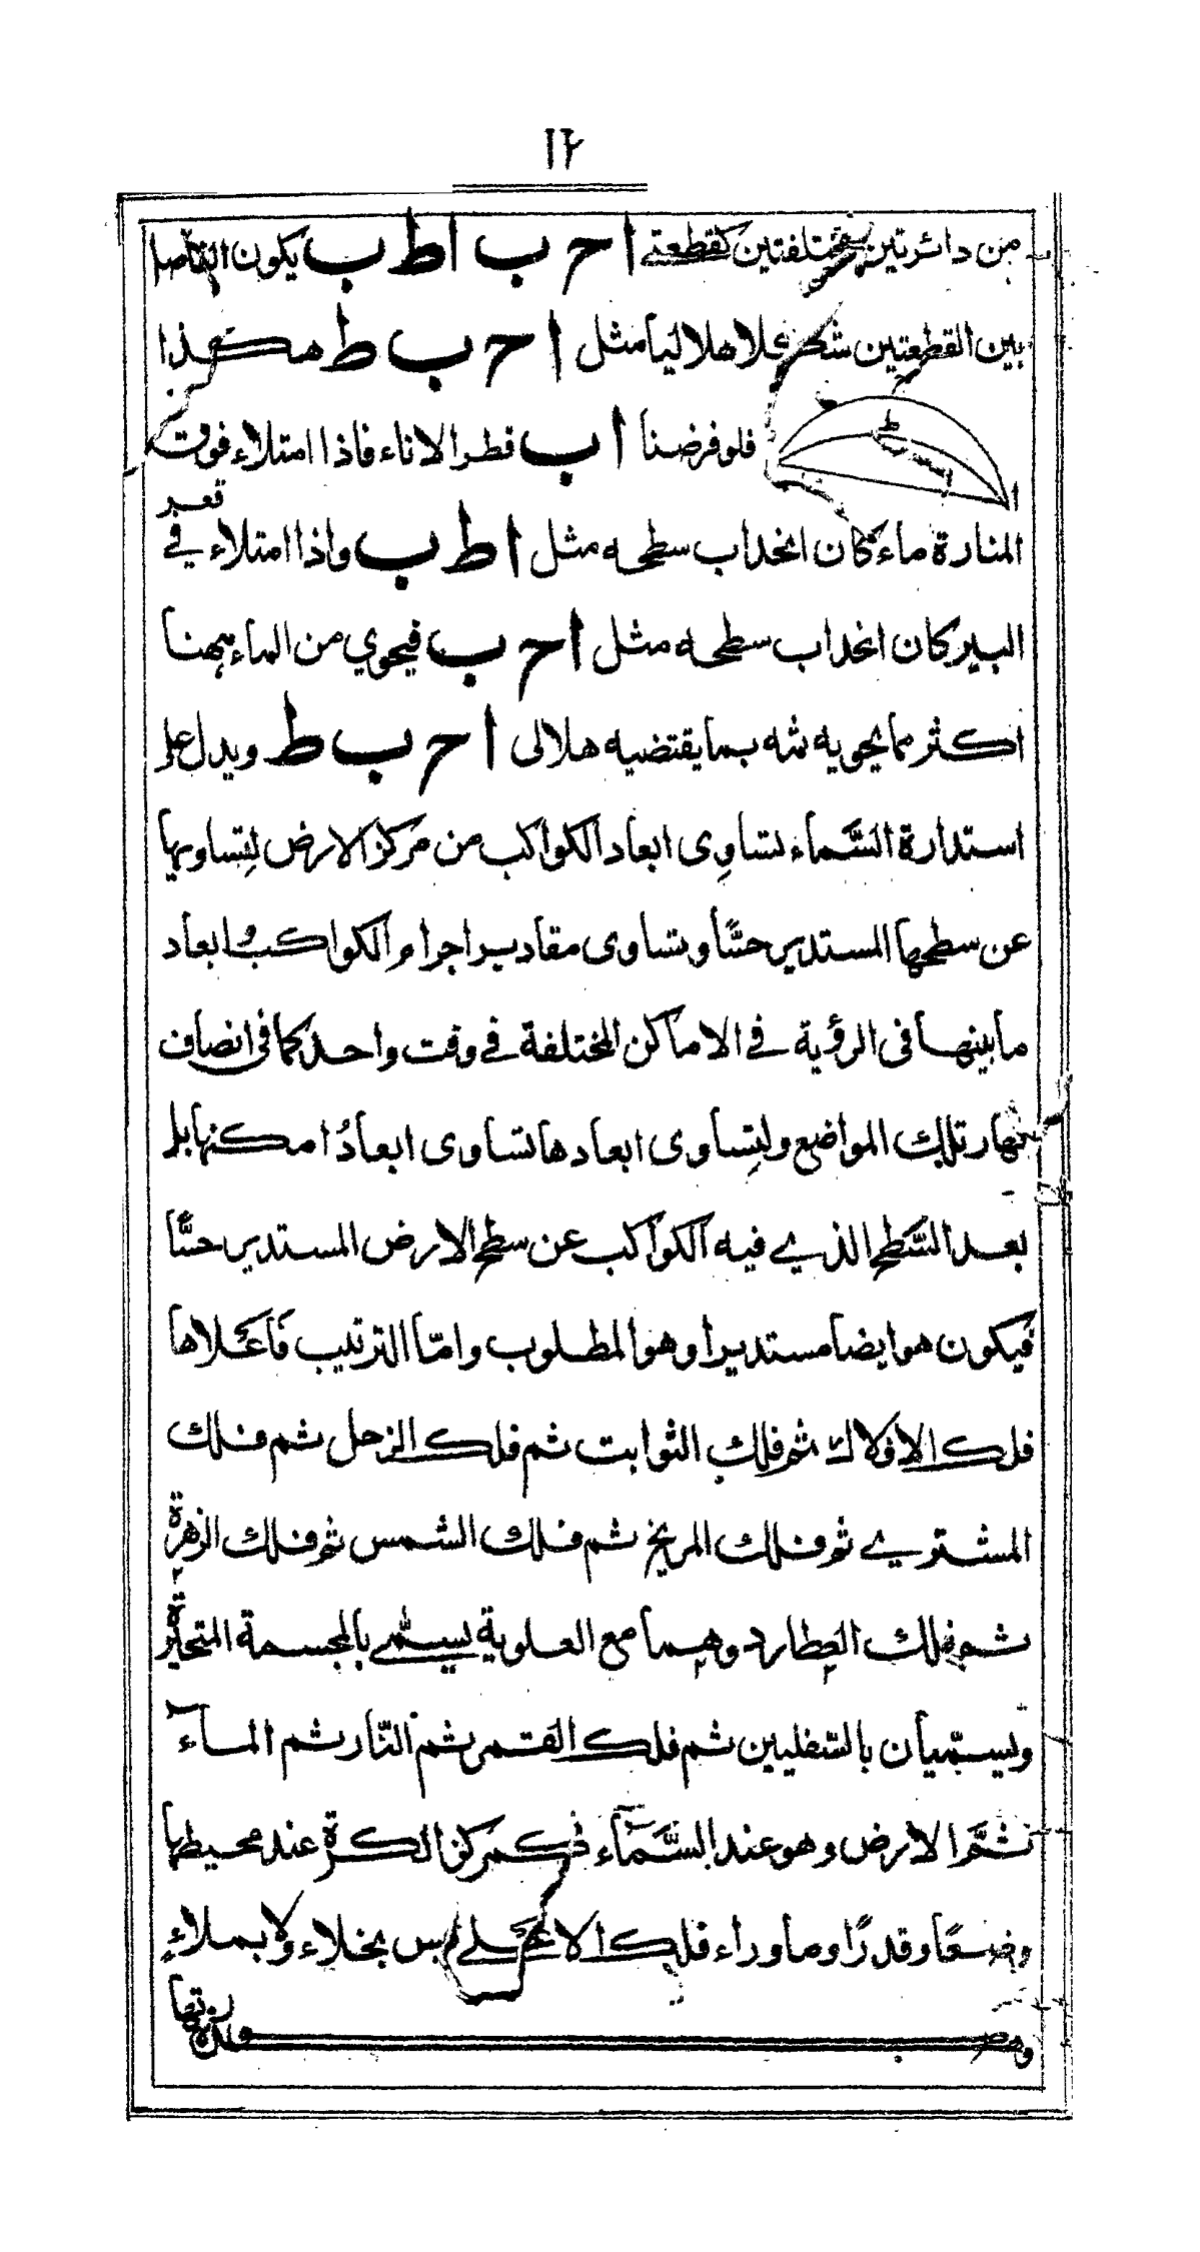 ١٢
من دائرتين مختلفتين كقطعتي ا ح ب ا ط ب يكون التفاضل
بين القطعتين شكلا هلاليا مثل ا ح ب ط هكذا
ا ط
فلو فرضنا ا ب قطر الاناء فاذا امتلاء فوق
المنارة ماء كان انحداب سطحه مثل ا ط ب واذا امتلاء في قعر
البير كان انحداب سطحه مثل ا ح ب فيحوي من الماء ههنا
اكثر مما يحويه ثمه بما يقتضيه هلالى ا ح ب ط ويدل على
استدارة السَّماء تساوِى ابعاد الكواكب من مركز الارض لتِساويها
عن سطحها المستدير حسًّا وتساوى مقادير اجرام الكواكب وابعاد
ما بينها فى الرؤية في الاماكن المختلفة في وقت واحد كما فى انصاف
نهار تلك المواضع ولتِساوى ابعادها تساوى ابعادُ امكنها بل
بعد السَّطح الذي فيه الكواكب عن سطح الارض المستدير حسًّا
فيكون هو ايضا مستديرا وهو المطلوب وامّا الترتيب فَاَعْلاها
فلك الافلاك ثم فلك الثوابت ثم فلك الزحل ثم فلك
المشتري ثم فلك المريخ ثم فلك الشمس ثم فلك الزهرة
ثم فلك العطارد وهما مع العلوية يسمّى بالمجسمة المتحيّرة
ويسمّيان بالسّفليين ثم فلك القمر ثم النّار ثم الماء
ثمَّ الارض وهو عند السَّمآء كمركز الكرة عند محيطها
وضعًا وقدرًا وما وراء فلك الاعلى ليس بخلاء ولا بملاءٍ